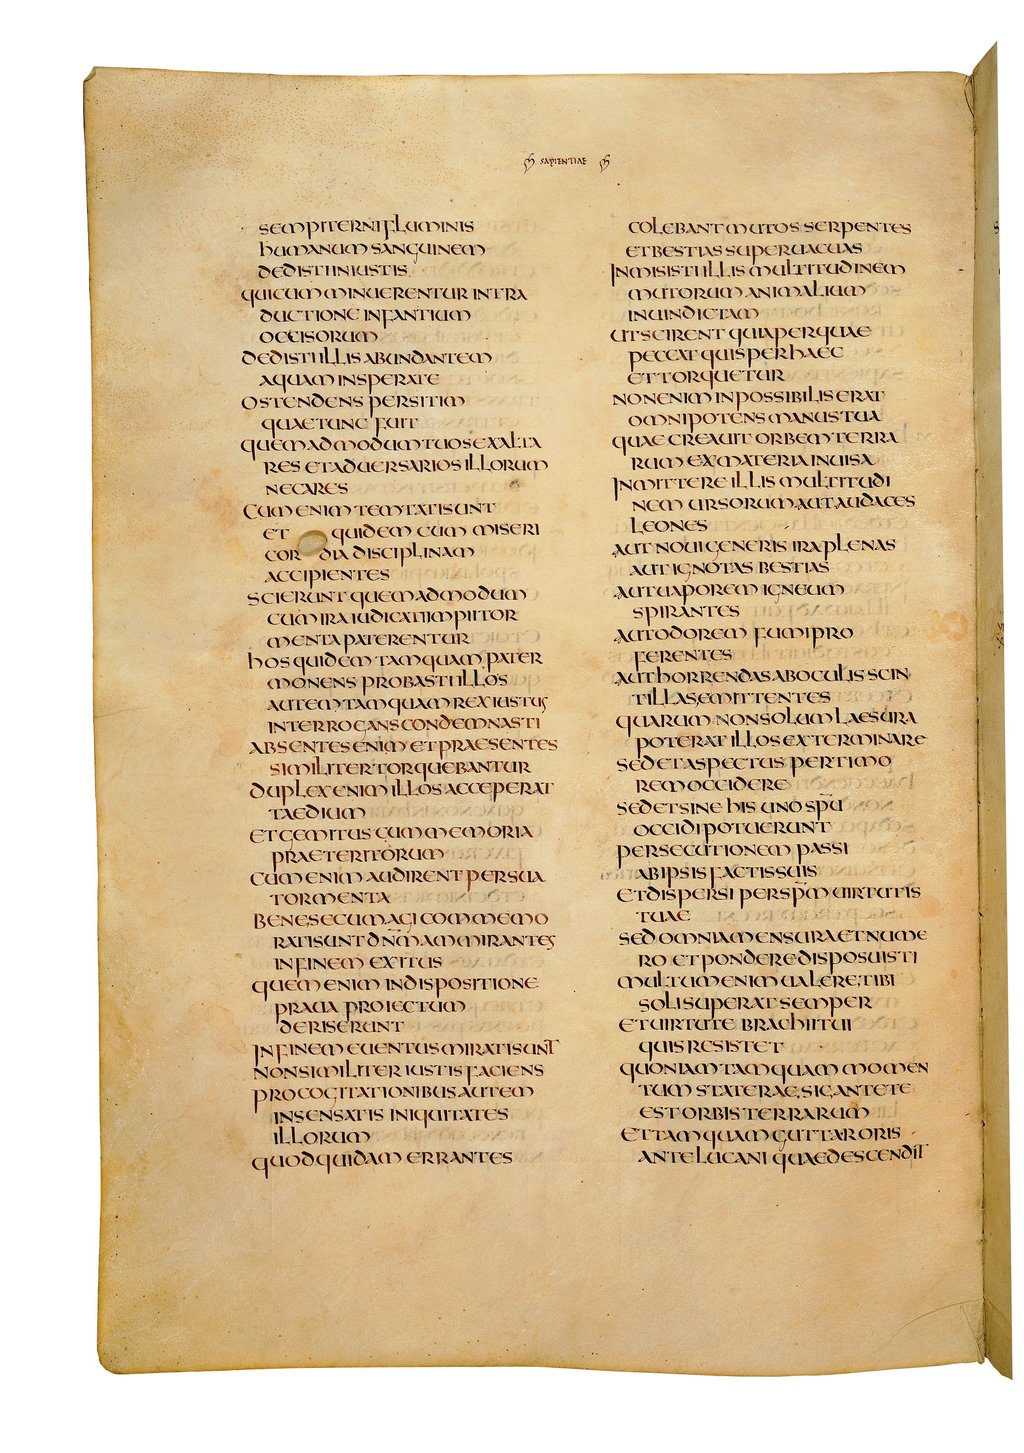 SAPIENTIAE
SEMPITERNI FLUMINIS
HUMANUM SANGUINEM
DEDISTI INIUSTIS
QUI CUM MINUERENTUR IN TRA
DUCTIONE INFANTIUM
OCCISORUM
DEDISTI ILLIS ABUNDANTEM
AQUAM INSPERATE
OSTENDENS PER SITIM
QUAE TUNC FUIT
QUEMADMODUM TUOS EXALTA
RES ET ADUERSARIOS ILLORUM
NECARES
CUM ENIM TEMTATI SUNT
ET QUIDEM CUM MISERI
CORDIA DISCIPLINAM
ACCIPIENTES
SCIERUNT QUEMADMODUM
CUM IRA IUDICATI IMPII TOR
MENTA PATERENTUR
HOS QUIDEM TAMQUAM PATER
MONENS PROBASTI ILLOS
AUTEM TAMQUAM REX IUSTUS
INTERROGANS CONDEMNASTI
ABSENTES ENIM ET PRAESENTES
SIMILITER TORQUEBANTUR
DUPLEX ENIM ILLOS ACCEPERAT
TAEDIUM
ET GEMITUS CUM MEMORIA
PRAETERITORUM
CUM ENIM AUDIRENT PER SUA
TORMENTA
BENE SECUM AGI COMMEMO
RATI SUNT DN̄M AMMIRANTES
IN FINEM EXITUS
QUEM ENIM IN DISPOSITIONE
PRAUA PROIECTUM
DERISERUNT
IN FINEM EUENTUS MIRATI SUNT
NON SIMILITER IUSTIS FACIENS
PRO COGITATIONIBUS AUTEM
INSENSATIS INIQUITATES
ILLORUM
QUOD QUIDAM ERRANTES
COLEBANT MUTOS SERPENTES
ET BESTIAS SUPERUACUAS
INMISISTI ILLIS MULTITUDINEM
MUTORUM ANIMALIUM
IN UINDICTAM
UT SCIRENT QUIA PER QUAE
PECCAT QUIS PER HAEC
ET TORQUETUR
NON ENIM INPOSSIBILIS ERAT
OMNIPOTENS MANUS TUA
QUAE CREAUIT ORBEM TERRA
RUM EX MATERIA INUISA
INMITTERE ILLIS MULTITUDI
NEM URSORUM AUT AUDACES
LEONES
AUT NOUI GENERIS IRA PLENAS
AUT IGNOTAS BESTIAS
AUT UAPOREM IGNEUM
SPIRANTES
AUT ODOREM FUMI PRO
FERENTES
AUT HORRENDAS AB OCULIS SCIN
TILLAS EMITTENTES
QUARUM NON SOLUM LAESURA
POTERAT ILLOS EXTERMINARE
SED ET ASPECTUS PER TIMO
REM OCCIDERE
SED ET SINE HIS UNO SPŪ
OCCIDI POTUERUNT
PERSECUTIONEM PASSI
AB IPSIS FACTIS SUIS
ET DISPERSI PER SPM̄ UIRTUTIS
TUAE
SED OMNIA MENSURA ET NUME
RO ET PONDERE DISPOSUISTI
MULTUM ENIM UALERE TIBI
SOLI SUPERAT SEMPER
ET UIRTUTE BRACHII TUI
QUIS RESISTET
QUONIAM TAMQUAM MOMEN
TUM STATERAE SIC ANTE TE
EST ORBIS TERRARUM
ET TAMQUAM GUTTA RORIS
ANTELUCANI QUAE DESCENDIT